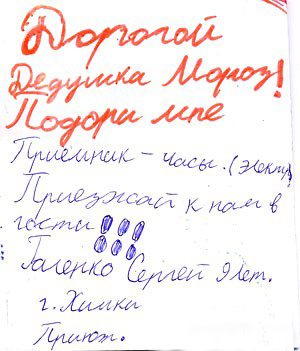 Дорогой
Дедушка Мороз!
Подари мне
Приемник - часы. (электр)
Приезжай к нам в
гости!!!
Галенко Сергей 9 лет.
г. Химки
Приют.